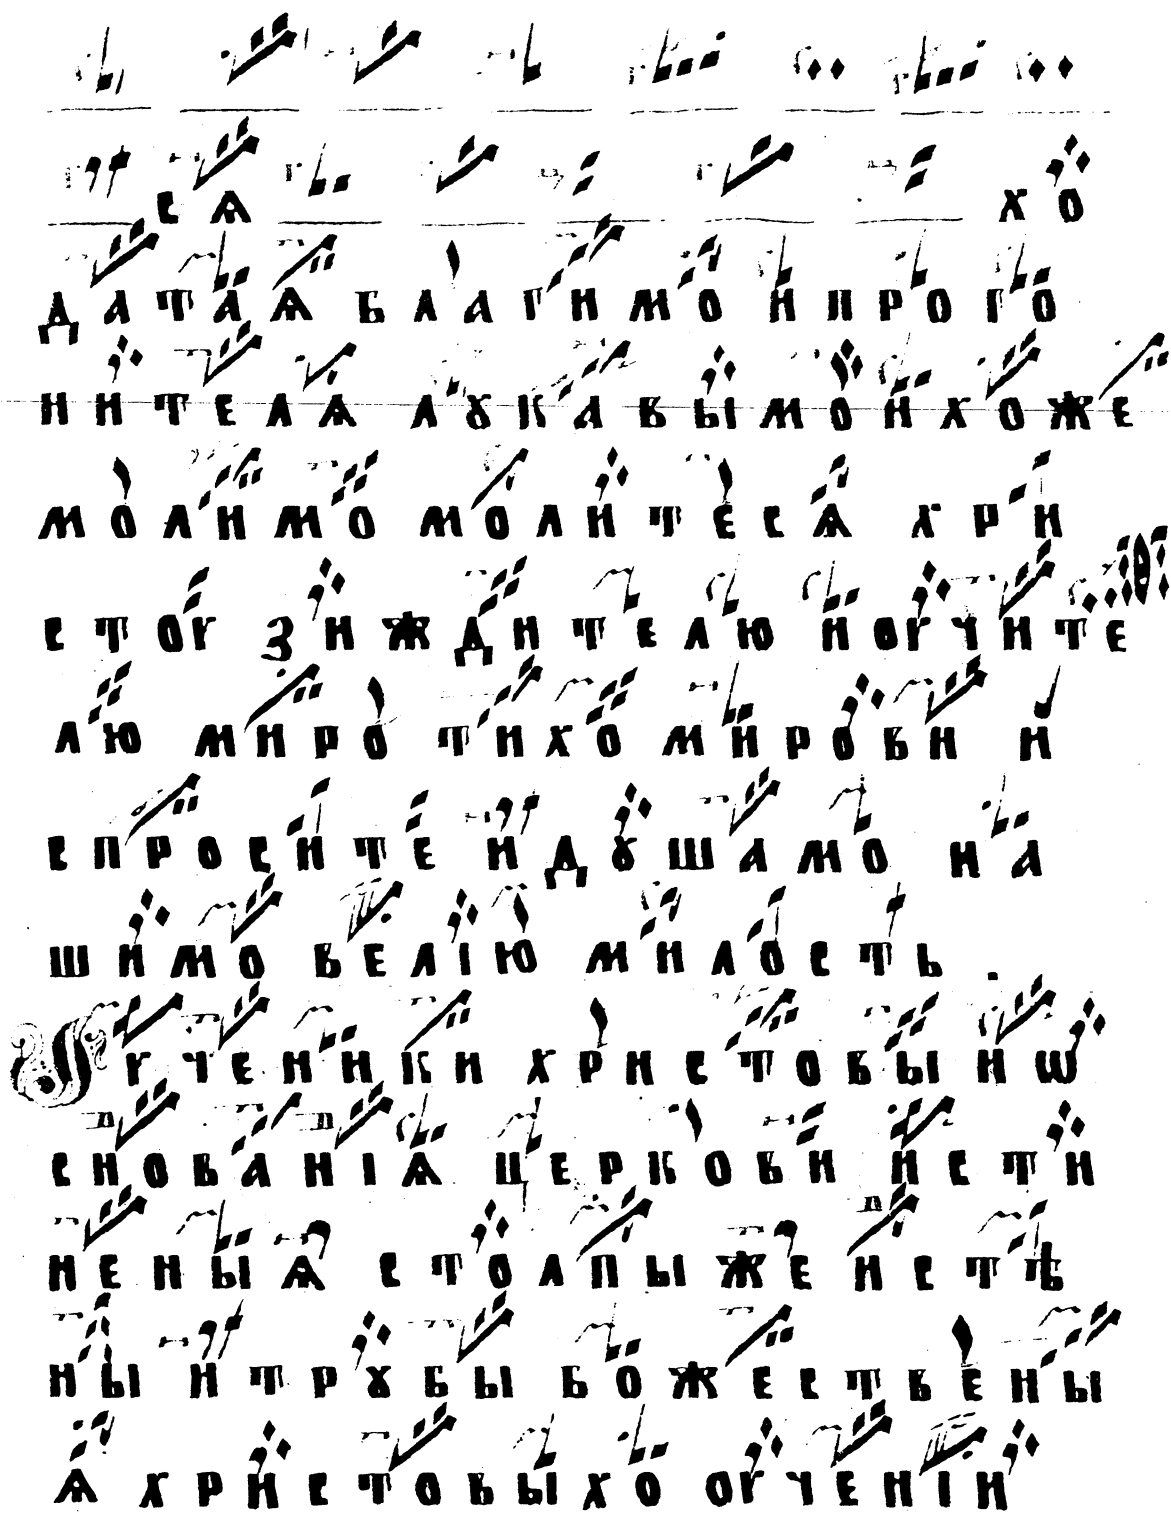 сѧ хо
датаѧ благимо и прого
нителѧ лꙋкавымо и хоже
молимо молитесѧ хри
стоу зиждителю и оучите
лю миро тихомирови и
спросите и дꙋшамо на
шимо велїю милость.
Оученики христовы и ѡ
снованїѧ церкови исти
неныѧ столпы же истѣ
ны и трꙋбы божествены
ѧ христовыхо оученїи